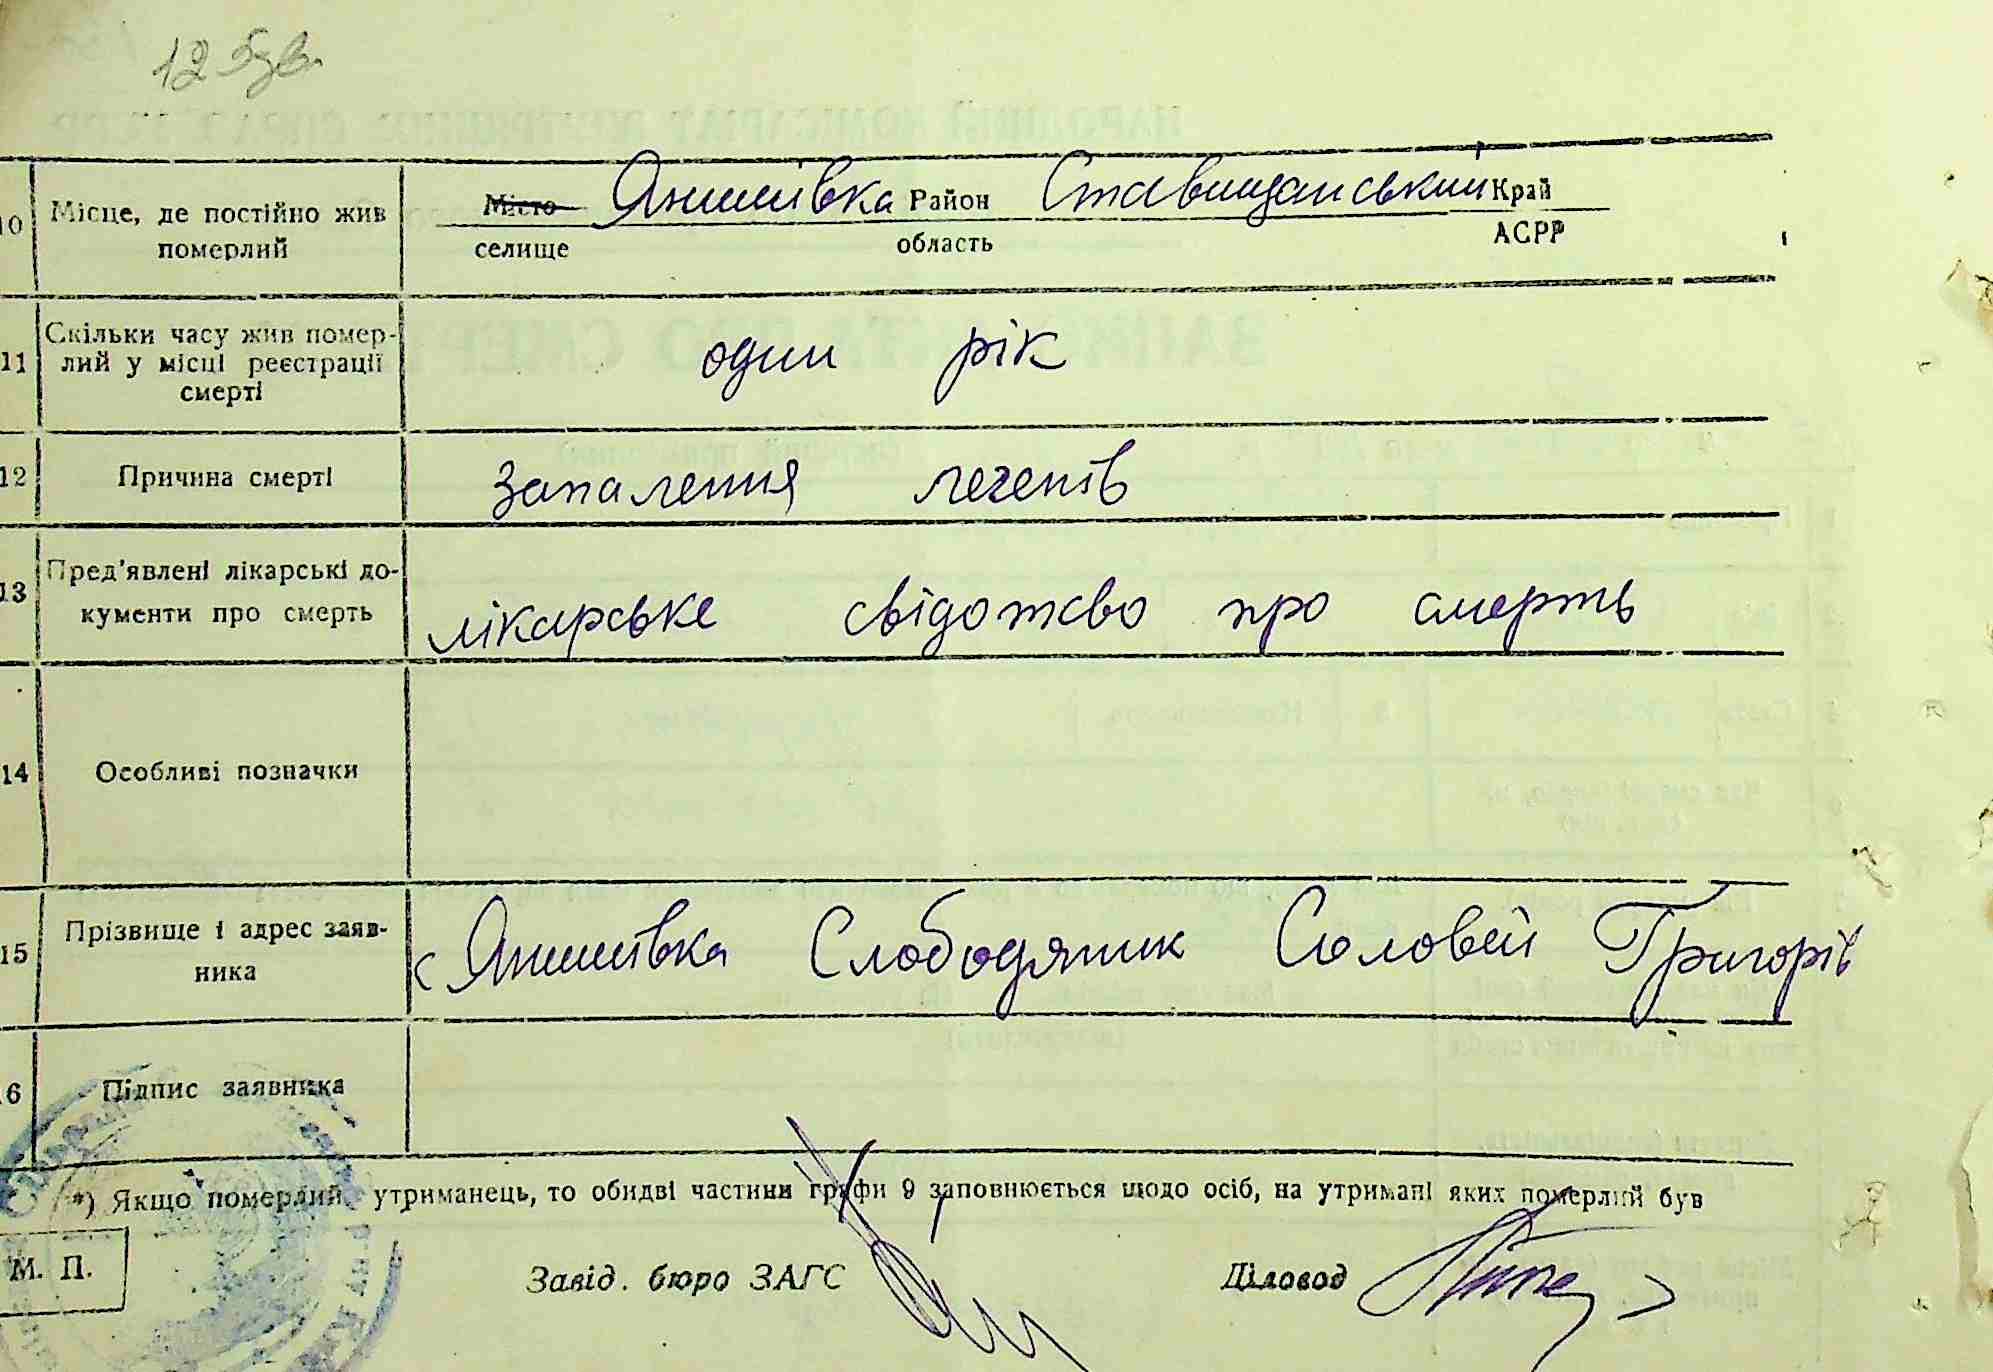 12
10 Місце, де постійно жив померлий Місто Янишівка Район Ставищанський Край
селище область АСРР
11 Скільки часу жив помер-
лий у місці реєстрації
смерті
один рік
12 Причина смерті запалення легенів
13 Пред'явлені лікарські до-
кументи про смерть
лікарське свідотсво про смерть
14 Особливі позначки
15 Прізвище і адрес заяв-
ника
с Янишівка Слободяник Соловей Григорів
16 Підпис заявника
*) Якщо померлий утриманець, то обидві частини графи 9 заповнюється щодо осіб, на утримані яких померлий був
М. П.
Завід. бюро ЗАГС Діловод